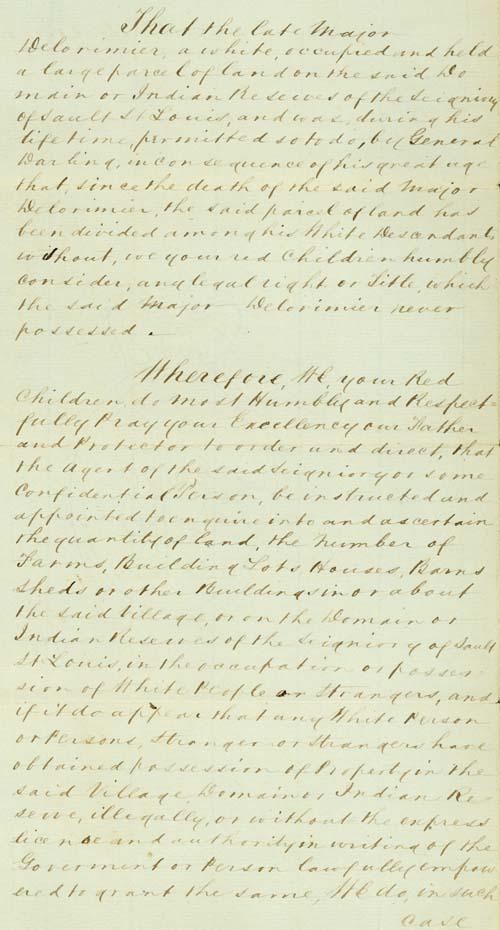 That the late Major
Delorimier, a white, occupied and held
a large parcel of land on the said Do
main or Indian Reserves of the Seigniory
of Sault St Louis, and was, during his
life time, permitted so to do, by General
Darling, in consequence of his great age
that, since the death of the said Major
Delorimier, the said parcel of land has
been divided among his White Descendants
without, we your red Children humbly
consider, any legal right or Title, which
the said Major Delorimier never
possessed.
Wherefore, We, your Red
Children, do most Humbly and Respect=
fully Pray your Excellency our Father
and Protector to order and direct, that
the Agent of the said Seigniory or some
Confidential Person, be instructed and
appointed to enquire into and ascertain
the quantity of land, the number of
Farms, Building Lots Houses, Barns
Sheds or other Buildings in or about
the said Village, or on the Domain or
Indian Reserves of the Seigniory of Sault
St Louis, in the occupation or posses-
sion of White People or Strangers, and
if it do appear that any White Person
or Persons, Stranger or Strangers have
obtained possession of Property in the
said Village Domain or Indian Re
serve, illegally, or without the express
licence and authority in writing of the
Goverment or Person lawfully empow
ered to grant the same, We do, in such
case